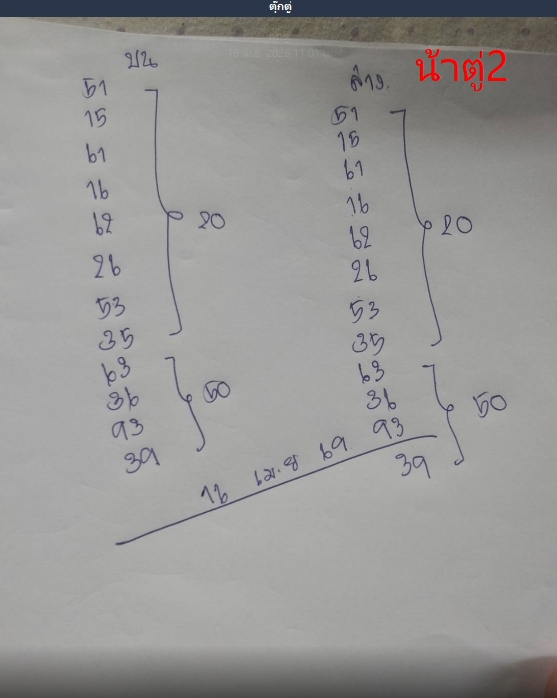 ตุ๊กตู่
น้าตู่2
บน
51
15
61
16
62
26
53
35
20
63
36
93
39
50
ล่าง
51
15
61
16
62
26
53
35
20
63
36
93
39
50
16 เม.ย 69